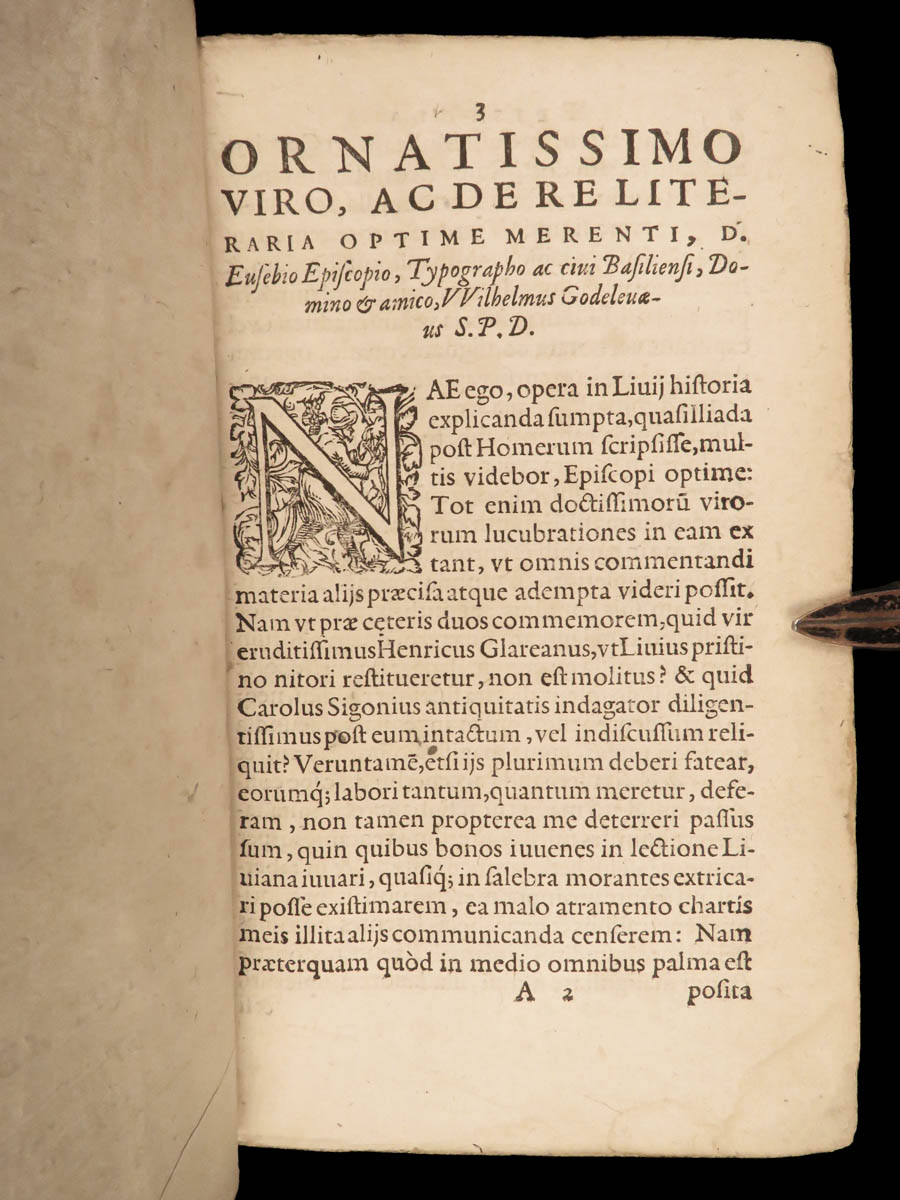 3
ORNATISSIMO
VIRO, AC DE RE LITE-
RARIA OPTIME MERENTI, D.
Euſebio Epiſcopio, Typographo ac ciui Baſilienſi, Do-
mino & amico, VVilhelmus Godeleuæ-
us S. P. D.
NAE ego, opera in Liuij hiſtoria
explicanda ſumpta, quaſi Iliada
poſt Homerum ſcripſiſſe, mul-
tis videbor, Epiſcopi optime:
Tot enim doctiſſimorū viro-
rum lucubrationes in eam ex
tant, vt omnis commentandi
materia alijs præciſa atque adempta videri poſſit.
Nam vt præ cęteris duos commemorem, quid vir
eruditiſſimus Henricus Glareanus, vt Liuius priſti-
no nitori reſtitueretur, non eſt molitus? & quid
Carolus Sigonius antiquitatis indagator diligen-
tiſſimus poſt eum intactum, vel indiſcuſſum reli-
quit? Veruntamē, etſi ijs plurimum deberi fatear,
eorumq́; labori tantum, quantum meretur, defe-
ram, non tamen propterea me deterreri paſſus
ſum, quin quibus bonos iuuenes in lectione Li-
uiana iuuari, quaſiq́; in ſalebra morantes extrica-
ri poſſe exiſtimarem, ea malo atramento chartis
meis illita alijs communicanda cenſerem: Nam
præterquam quòd in medio omnibus palma eſt
A 2 poſita